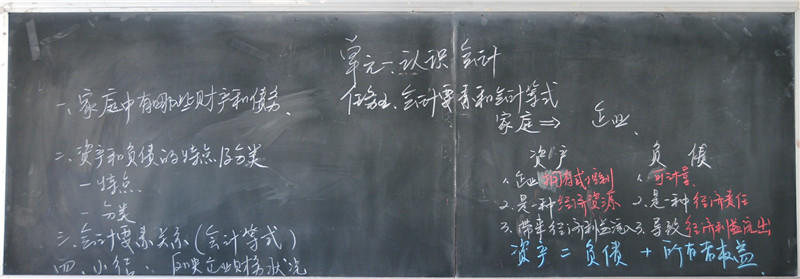 单元一、认识会计
任务二、会计要素和会计等式
一、家庭中有哪些财产和债务、
二、资产和负债的特点及分类
一特点
一分类
三、会计要素关系(会计等式)
四、小结、反映企业财务状况
家庭 ⇒ 企业、
资产
1、企业拥有或控制
2、是一种经济资源
3、带来经济利益流入
负债
1、可计量
2、是一种经济责任
3、导致经济利益流出
资产 = 负债 + 所有者权益